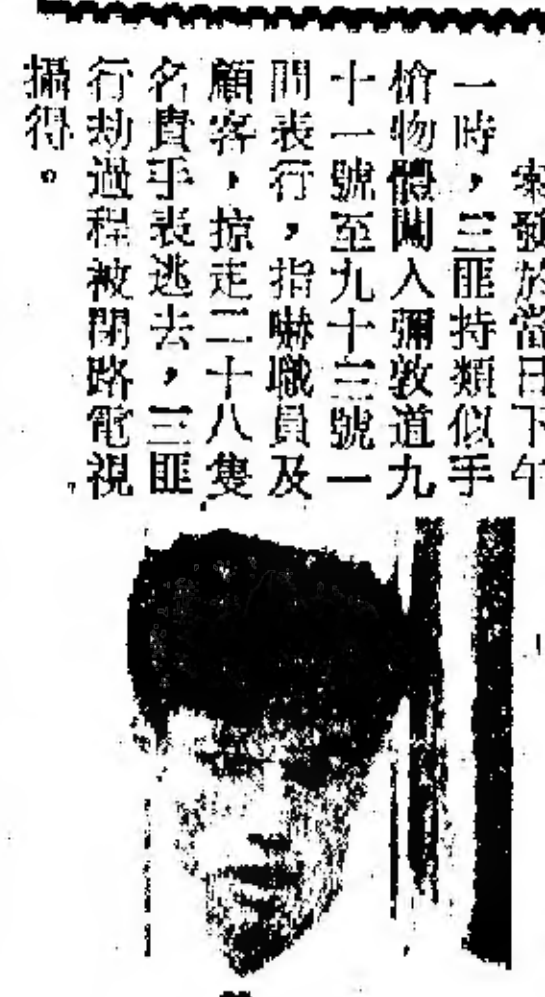 案發於當日下午
一時，三匪持類似手
槍物體闖入彌敦道九
十一號至九十三號一
間表行，指嚇職員及
顧客，掠走二十八隻
名貴手表逃去，三匪
行劫過程被閉路電視
攝得。